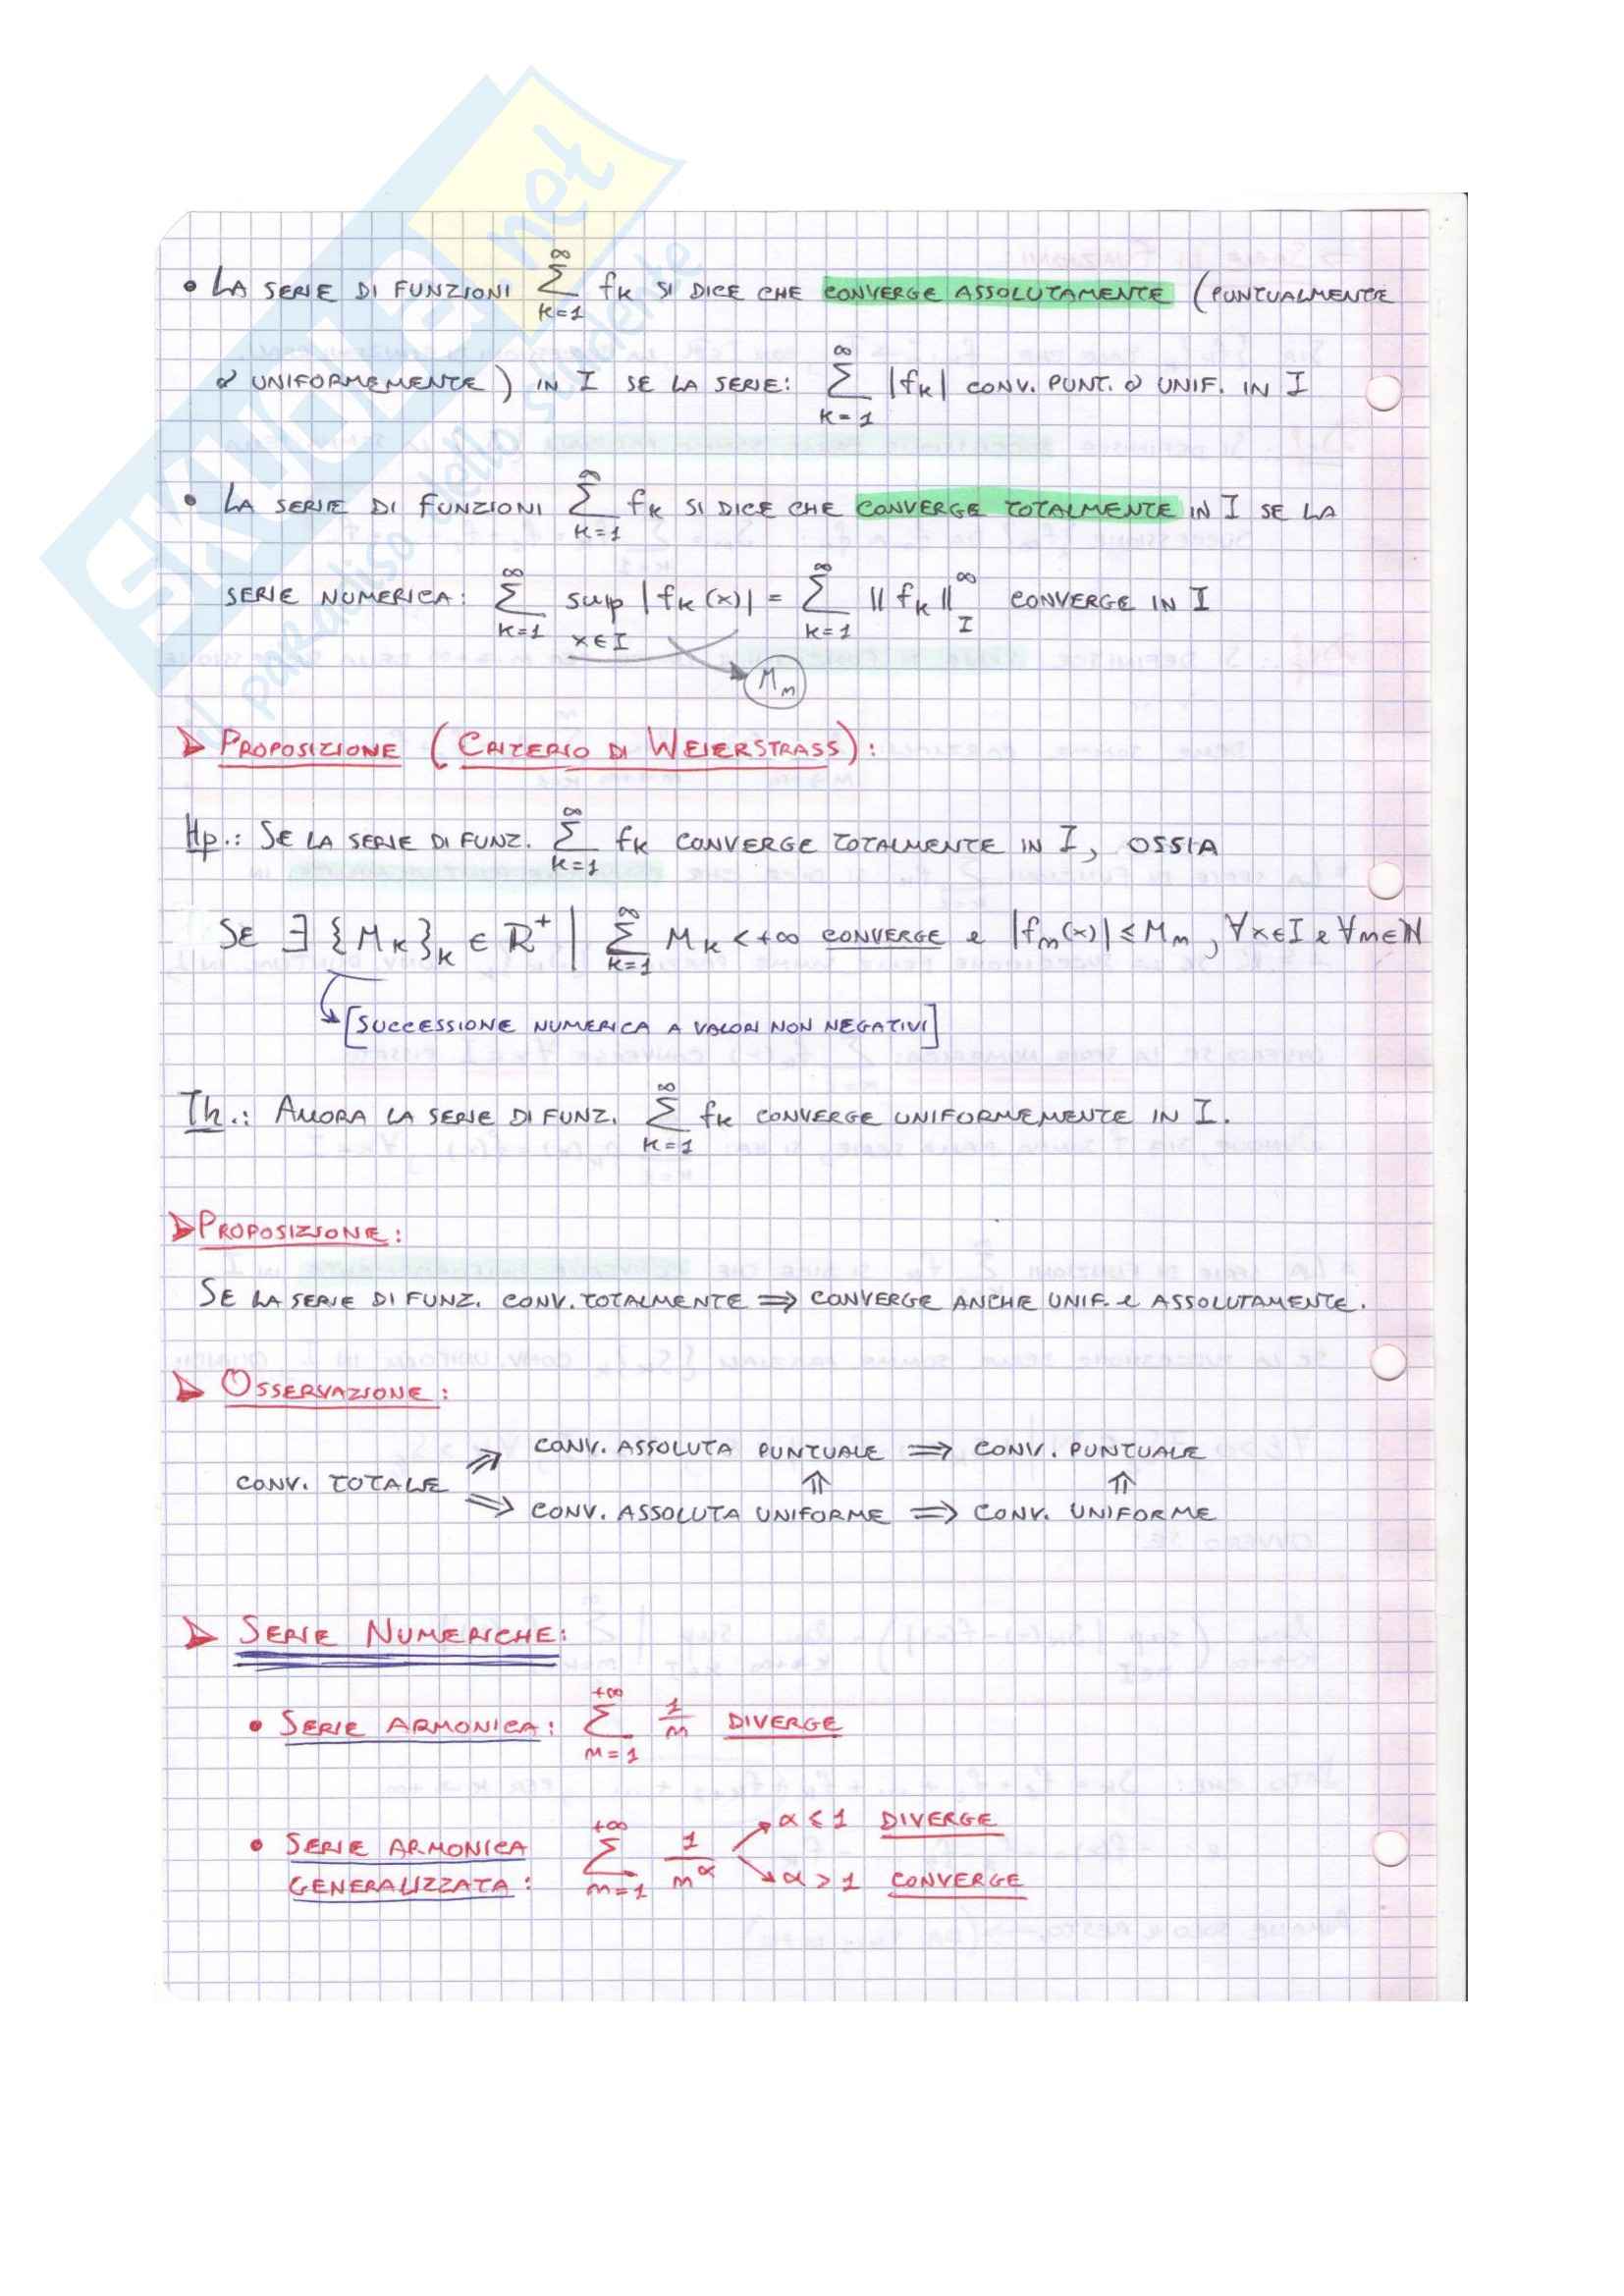 SKUOLA.net
il paradiso dello studente
• LA SERIE DI FUNZIONI ∑_{k=1}^{∞} f_k SI DICE CHE CONVERGE ASSOLUTAMENTE (PUNTUALMENTE
O UNIFORMEMENTE) IN I SE LA SERIE: ∑_{k=1}^{∞} |f_k| CONV. PUNT. O UNIF. IN I
• LA SERIE DI FUNZIONI ∑_{k=1}^{∞} f_k SI DICE CHE CONVERGE TOTALMENTE IN I SE LA
SERIE NUMERICA: ∑_{k=1}^{∞} sup_{x∈I} |f_k(x)| = ∑_{k=1}^{∞} ||f_k||_I^∞ CONVERGE IN I
M_n
➤ PROPOSIZIONE (CRITERIO DI WEIERSTRASS):
Hp.: SE LA SERIE DI FUNZ. ∑_{k=1}^{∞} f_k CONVERGE TOTALMENTE IN I, OSSIA
SE ∃ {M_k}_k ∈ R^+ | ∑_{k=1}^{∞} M_k < +∞ CONVERGE e |f_n(x)| ≤ M_n, ∀x∈I e ∀n∈N
[SUCCESSIONE NUMERICA A VALORI NON NEGATIVI]
Th.: ALLORA LA SERIE DI FUNZ. ∑_{k=1}^{∞} f_k CONVERGE UNIFORMEMENTE IN I.
➤ PROPOSIZIONE:
SE LA SERIE DI FUNZ. CONV. TOTALMENTE ⟹ CONVERGE ANCHE UNIF. e ASSOLUTAMENTE.
➤ OSSERVAZIONE:
CONV. ASSOLUTA PUNTUALE ⟹ CONV. PUNTUALE
CONV. TOTALE ⇗ ⇘ ⇑ ⇑
CONV. ASSOLUTA UNIFORME ⟹ CONV. UNIFORME
➤ SERIE NUMERICHE:
• SERIE ARMONICA: ∑_{n=1}^{+∞} 1/n DIVERGE
• SERIE ARMONICA GENERALIZZATA: ∑_{n=1}^{+∞} 1/n^α
α ≤ 1 DIVERGE
α > 1 CONVERGE